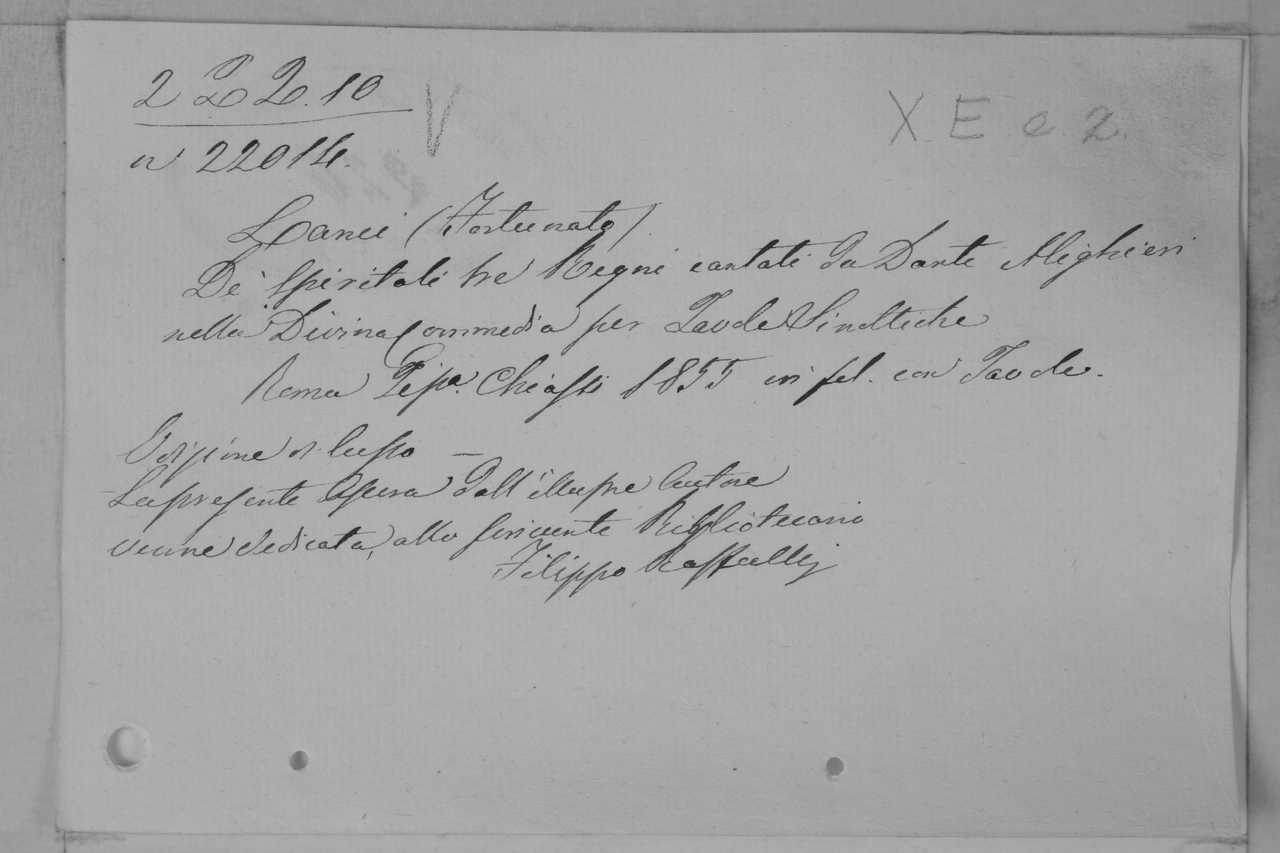 2 L L. 10
V
X. E. e. 2.
n 22014.
Lanci (Fortunato).
De' Spiritali tre Regni cantati da Dante Alighieri
nella Divina Commedia per Tavole Sinottiche
Roma Tipa. Chiassi 1855 in fol. con Tavole.
Edizione di lusso —
La presente Opera dall'illustre Autore
venne dedicata, allo scrivente Bibliotecario
Filippo Raffaelli